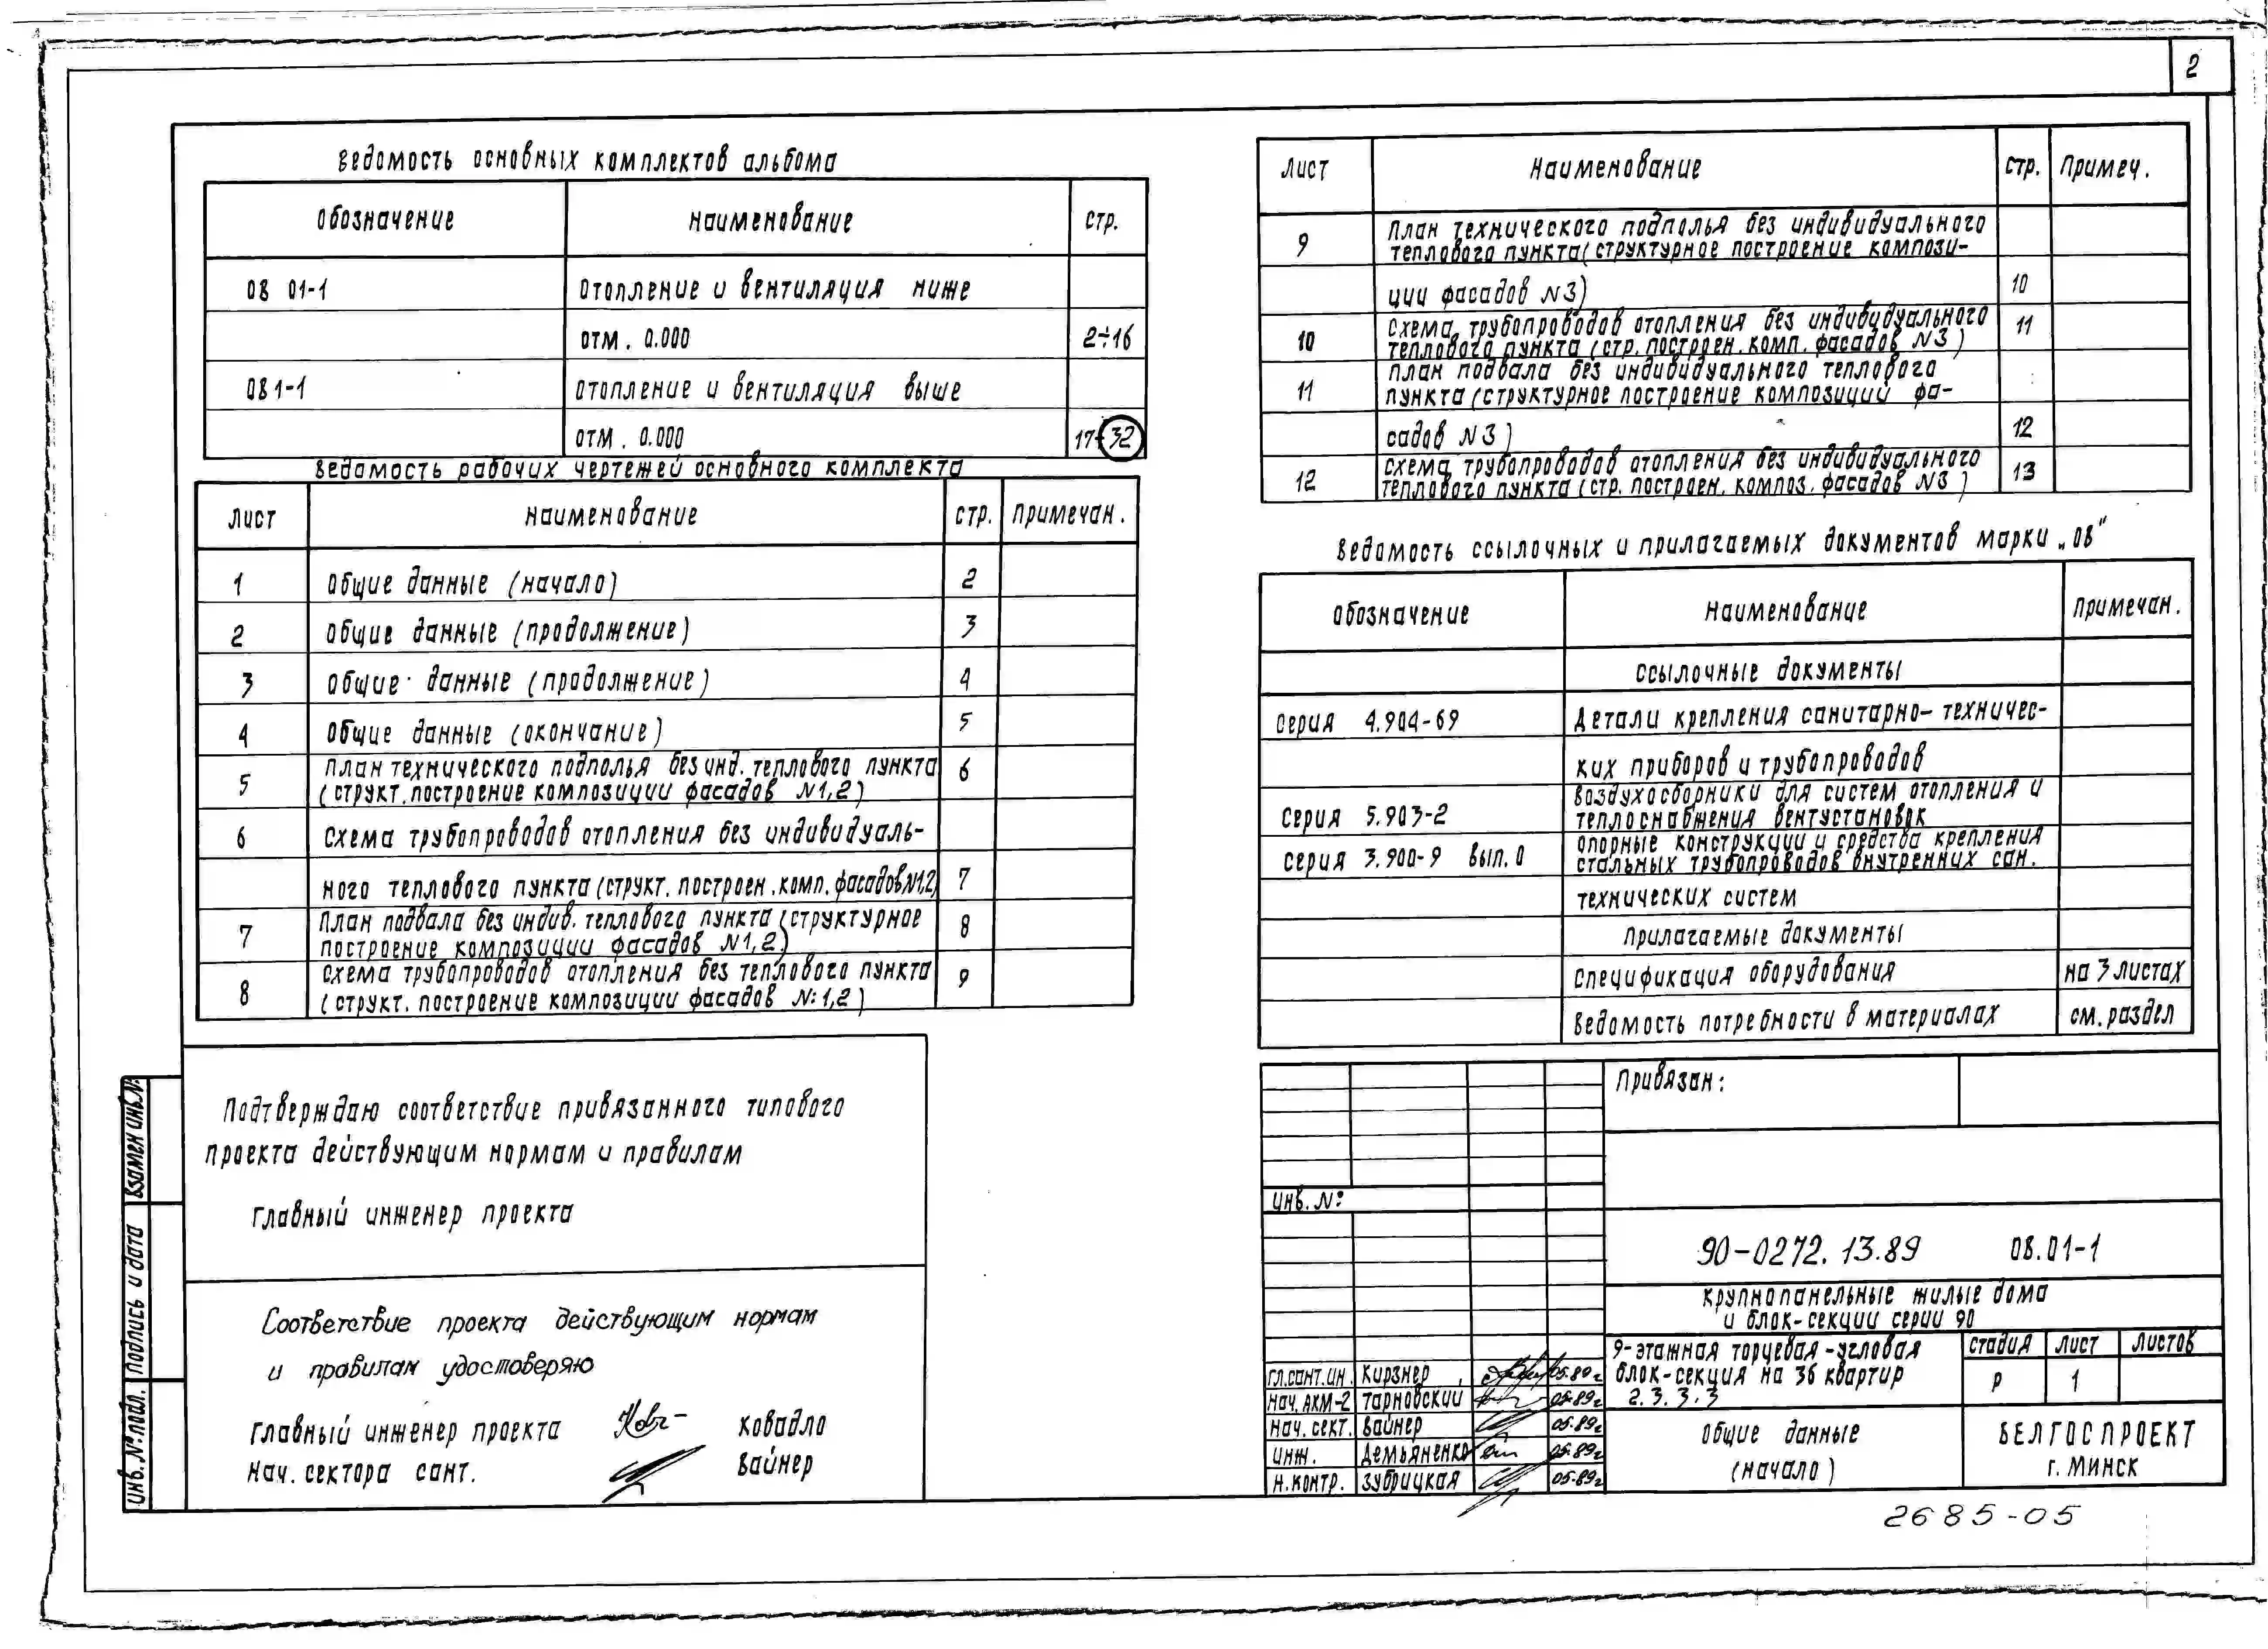 2
Ведомость основных комплектов альбома
Обозначение Наименование Стр.
ОВ 01-1 Отопление и вентиляция ниже
отм. 0.000 2÷16
ОВ 1-1 Отопление и вентиляция выше
отм. 0.000 17÷32
Ведомость рабочих чертежей основного комплекта
Лист Наименование Стр. Примечан.
1 Общие данные (начало) 2
2 Общие данные (продолжение) 3
3 Общие данные (продолжение) 4
4 Общие данные (окончание) 5
5 План технического подполья без инд. теплового пункта 6
(структ. построение композиции фасадов №1,2)
6 Схема трубопроводов отопления без индивидуаль-
ного теплового пункта (структ. построен. комп. фасадов №1,2) 7
7 План подвала без индив. теплового пункта (структурное 8
построение композиции фасадов №1,2)
8 Схема трубопроводов отопления без теплового пункта 9
(структ. построение композиции фасадов №:1,2)
Лист Наименование Стр. Примеч.
9 План технического подполья без индивидуального
теплового пункта (структурное построение компози-
ции фасадов №3) 10
10 Схема трубопроводов отопления без индивидуального 11
теплового пункта (стр. построен. комп. фасадов №3)
11 План подвала без индивидуального теплового
пункта (структурное построение композиций фа-
садов №3) 12
12 Схема трубопроводов отопления без индивидуального 13
теплового пункта (стр. построен. композ. фасадов №3)
Ведомость ссылочных и прилагаемых документов марки „ОВ"
Обозначение Наименование Примечан.
Ссылочные документы
Серия 4.904-69 Детали крепления санитарно-техничес-
ких приборов и трубопроводов
Серия 5.903-2 Воздухосборники для систем отопления и
теплоснабжения вентустановок
Серия 3.900-9 Вып. 0 Опорные конструкции и средства крепления
стальных трубопроводов внутренних сан.
технических систем
Прилагаемые документы
Спецификация оборудования на 3 листах
Ведомость потребности в материалах см. раздел
Подтверждаю соответствие привязанного типового
проекта действующим нормам и правилам
Главный инженер проекта
Соответствие проекта действующим нормам
и правилам удостоверяю
Главный инженер проекта Ковадло
Нач. сектора сант. Вайнер
Взамен инв.№
Подпись и дата
Инв. № подл.
Привязан:
Инв. №:
90-0272.13.89 ОВ.01-1
Крупнопанельные жилые дома
и блок-секции серии 90
9-этажная торцевая-угловая
блок-секция на 36 квартир
2.3.3.3
Стадия Лист Листов
Р 1
Гл.сант.ин. Кирзнер 05.89г.
Нач. АКМ-2 Тарновский 05.89г.
Нач. сект. Вайнер 05.89г
Инж. Демьяненко 05.89г
Н.контр. Зубрицкая 05.89г
Общие данные
(начало)
БЕЛГОСПРОЕКТ
г. Минск
2685-05